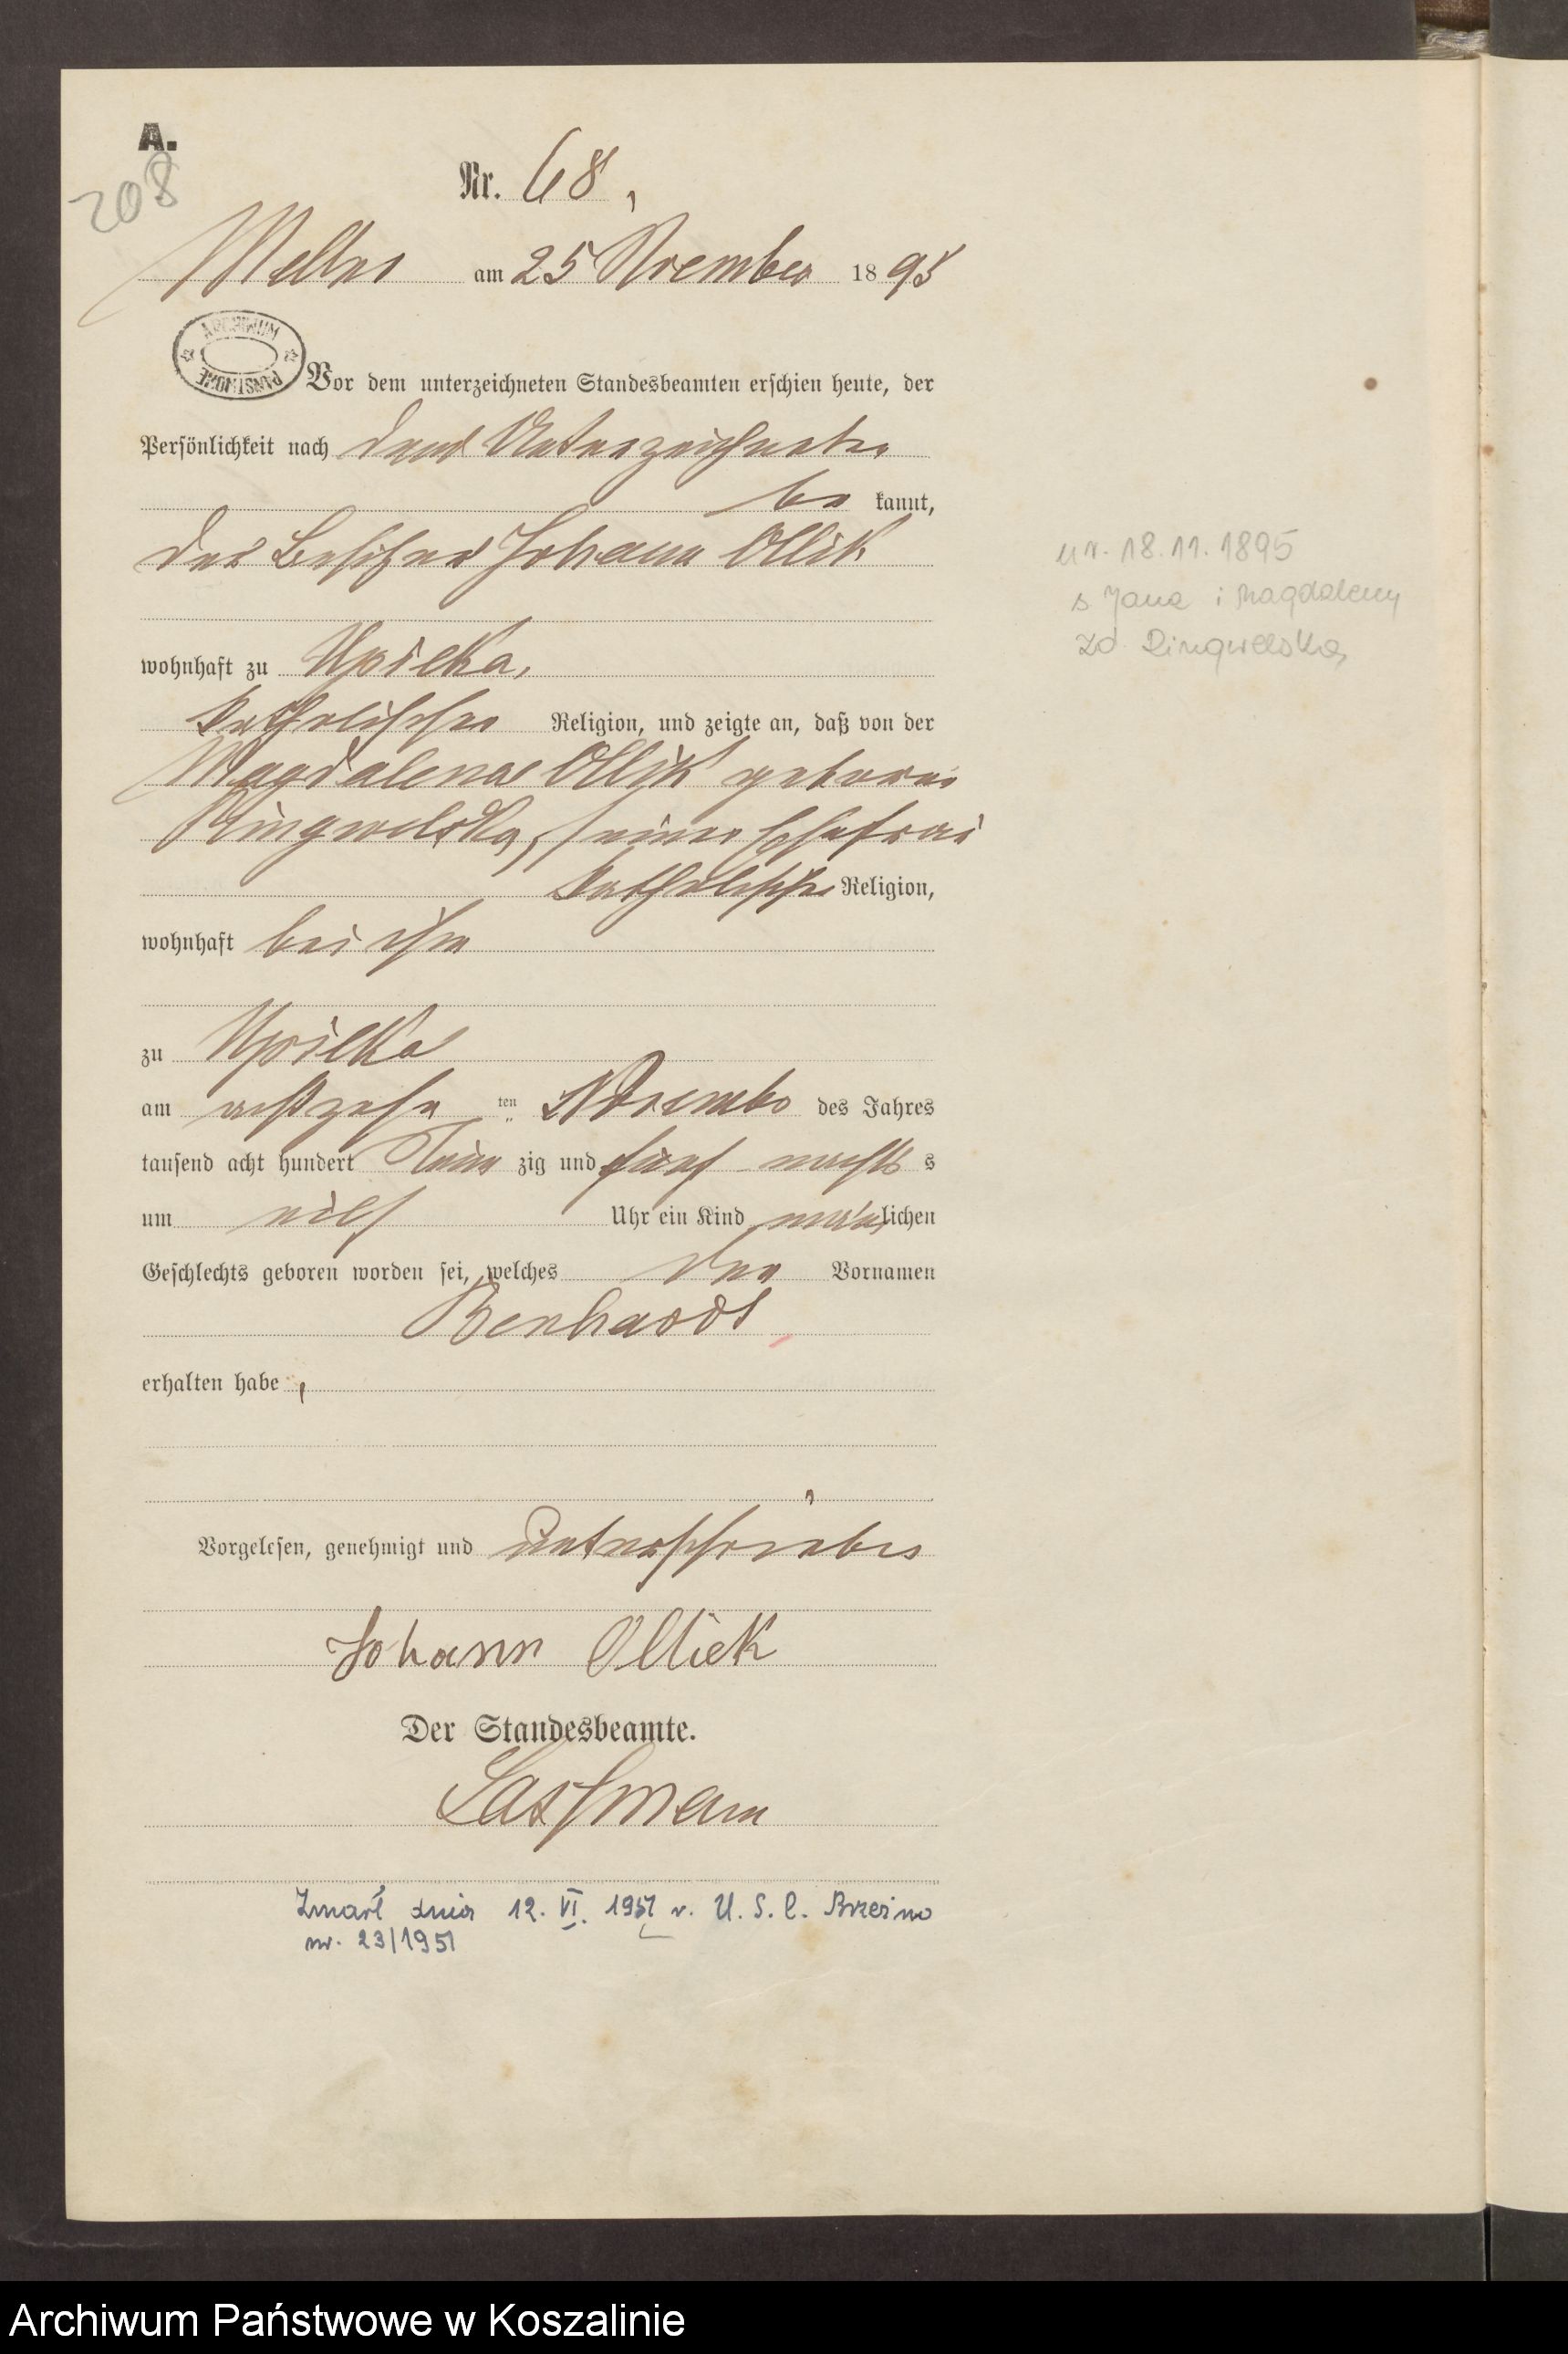 A.
208
Nr. 68,
am 25 November 1895
ARCHIWUM PAŃSTWOWE
Vor dem unterzeichneten Standesbeamten erschien heute, der
Persönlichkeit nach dem Unterzeichneten
be kannt,
der Besitzer Johann Ollik
ur. 18.11.1895
s Jana i Magdaleny
zd. Ringwelska
wohnhaft zu Upilka,
katholischer Religion, und zeigte an, daß von der
Magdalena Ollik geborne
Ringwelska, seiner Ehefrau
katholischer Religion,
wohnhaft bei ihm
zu Upilka
am achtzehn ten November des Jahres
tausend acht hundert Neun zig und fünf nachts s
um elf Uhr ein Kind män lichen
Geschlechts geboren worden sei, welches den Vornamen
Bernhardt
erhalten habe,
Vorgelesen, genehmigt und unterschrieben
Johann Olliek
Der Standesbeamte.
Zmarł dnia 12. VI. 1951 r. U. S. C. Brzeźno
nr. 23/1951
Archiwum Państwowe w Koszalinie